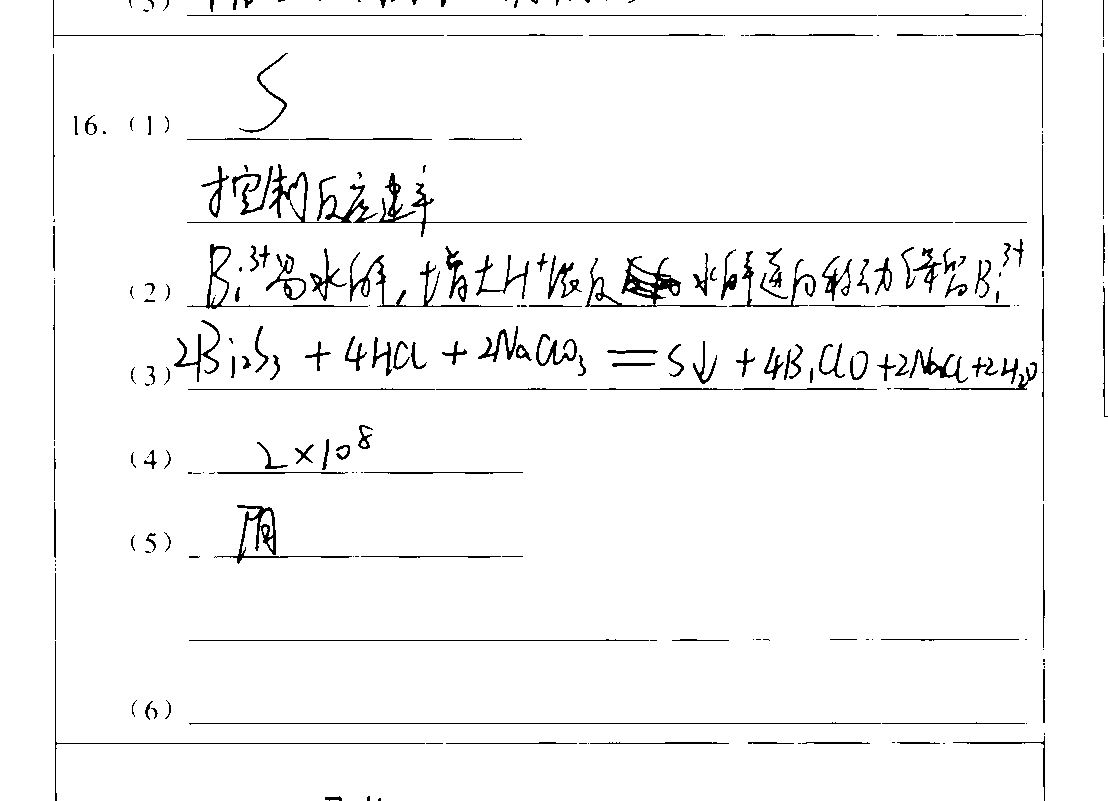 16. (1) S
控制反应速率
(2) Bi³⁺易水解,增大H⁺浓度 水解逆向移动 保留Bi³⁺
(3) 2Bi₂S₃ + 4HCl + 2NaClO₃ = S↓ + 4BiClO + 2NaCl + 2H₂O
(4) 2×10⁸
(5) 阴
(6)